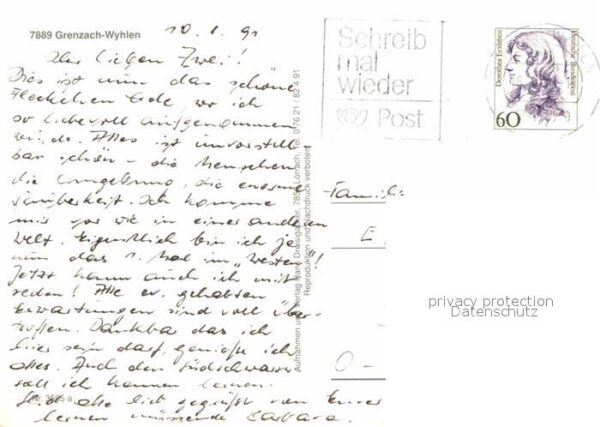 7889 Grenzach-Wyhlen
10.8.91
Ihr lieben Zwei!
Dies ist nun das schöne
Fleckchen Erde, wo ich
so liebevoll aufgenommen
wurde. Alles ist unvorstell
bar schön – die Menschen
die Umgebung, die enorme
Sauberkeit. Ich komme
mir vor wie in einer anderen
Welt. Eigentlich bin ich ja
nun das 1. Mal im "Westen"!
Jetzt kann auch ich mit
reden! Alle ev. gehabten
Erwartungen sind voll über-
troffen. Dankbar das ich
hier sein darf, genieße ich
alles. Auch den Südschwarzw.
soll ich kennen lernen.
Seid alle lieb gegrüßt von Eurer
Barbara.
Aufnahmen und Verlag Hans Dreisigacker, 7850 Lörrach, Tel. 0 76 21 / 82 4 91
Reproduktion und Nachdruck verboten!
Schreib
mal
wieder
Post
Dorothea Erxleben
Deutsche Bundespost
60
Familie
E
O -
privacy protection
Datenschutz